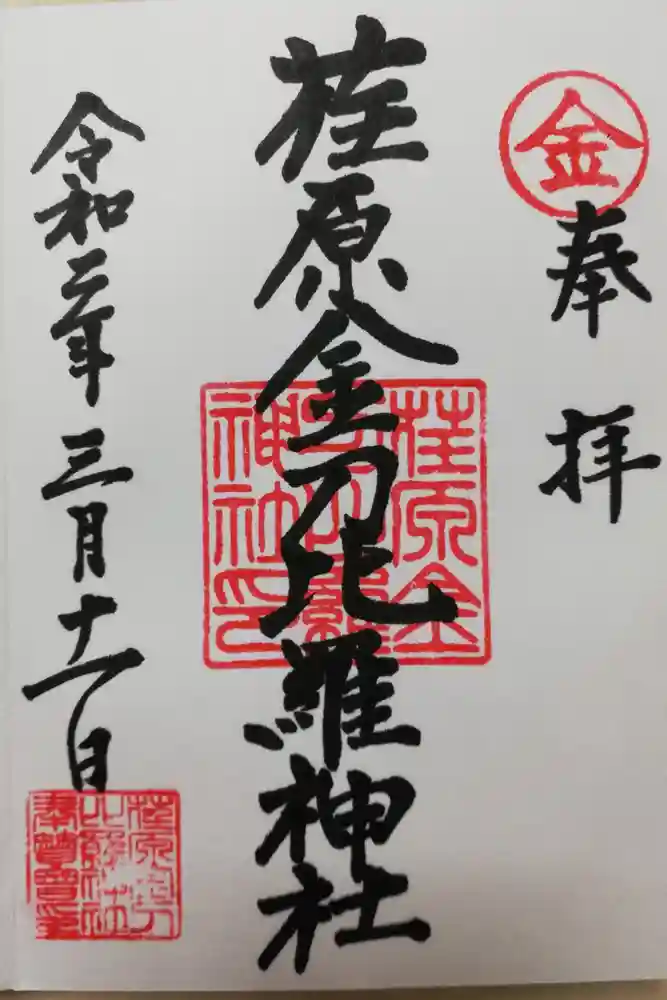 金
奉拝
荏原金刀比羅神社
荏原金
刀比羅
神社印
令和二年三月十一日